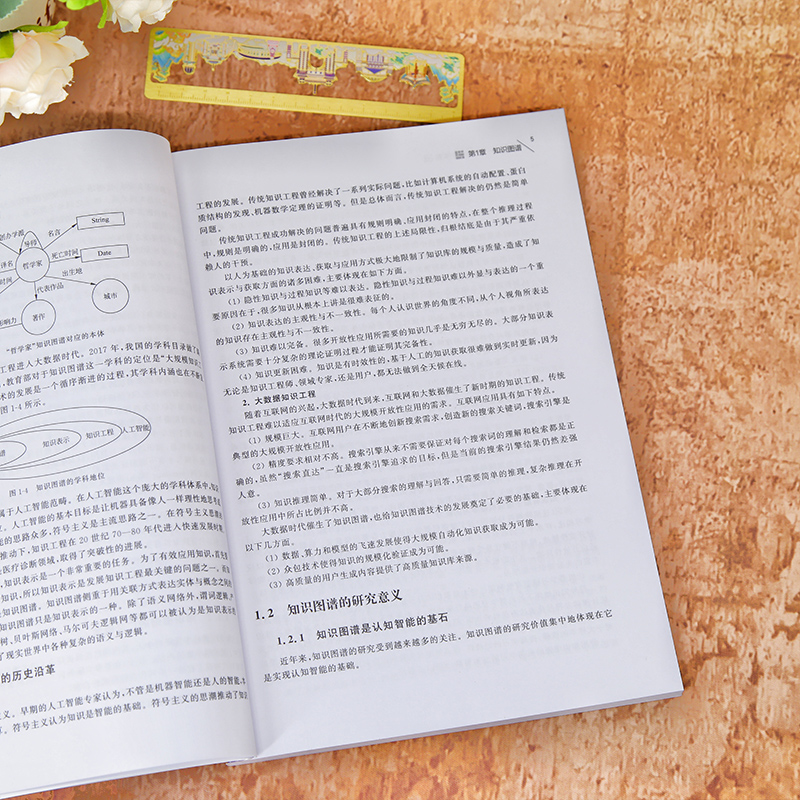 创办学派
导师
名言
String
哲学家
死亡时间
Date
译名
时间
出生地
代表作品
城市
影响力
著作
“哲学家”知识图谱对应的本体
工程进入大数据时代。2017 年,我国的学科目录做了
,教育部对于知识图谱这一学科的定位是“大规模知
术的发展是一个循序渐进的过程,其学科内涵也在不断
图 1-4 所示。
谱
知识表示
知识工程
人工智能
图 1-4 知识图谱的学科地位
属于人工智能范畴。在人工智能这个庞大的学科体系中,
。人工智能的基本目标是让机器具备像人一样理性地思考
能的思路众多,符号主义是主流思路之一。在符号主义思潮的
推动下,知识工程在 20 世纪 70—80 年代进入快速发展时期
医疗诊断领域,取得了突破性的进展。
,知识表示是一个非常重要的任务。为了有效应用知识,首先
知识,所以知识表示是发展知识工程最关键的问题之一。
知识图谱。知识图谱侧重于用关联方式表达实体与概念之间的
知识图谱只是知识表示的一种。除了语义网络外,谓词逻辑、
树、贝叶斯网络、马尔可夫逻辑网等都可以被认为是知识表示
了现实世界中各种复杂的语义与逻辑。
的历史沿革
义。早期的人工智能专家认为,不管是机器智能还是人的智能,本
。符号主义认为知识是智能的基础。符号主义的思潮推动了知识
第1章 知识图谱
5
工程的发展。传统知识工程曾经解决了一系列实际问题,比如计算机系统的自动配置、蛋白
质结构的发现、机器数学定理的证明等。但是总体而言,传统知识工程解决的仍然是简单
问题。
传统知识工程成功解决的问题普遍具有规则明确、应用封闭的特点,在整个推理过程
中,规则是明确的,应用是封闭的。传统知识工程的上述局限性,归根结底是由于其严重依
赖人的干预。
以人为基础的知识表达、获取与应用方式极大地限制了知识库的规模与质量,造成了知
识表示与获取方面的诸多困难,主要体现在如下方面。
(1) 隐性知识与过程知识等难以表达。隐性知识与过程知识难以外显与表达的一个重
要原因在于,很多知识从根本上讲是很难表征的。
(2) 知识表达的主观性与不一致性。每个人认识世界的角度不同,从个人视角所表达
的知识存在主观性与不一致性。
(3) 知识难以完备。很多开放性应用所需要的知识几乎是无穷无尽的。大部分知识表
示系统需要十分复杂的理论证明过程才能证明其完备性。
(4) 知识更新困难。知识是有时效性的,基于人工的知识获取很难做到实时更新,因为
无论是知识工程师、领域专家,还是用户,都无法做到全天候在线。
2. 大数据知识工程
随着互联网的兴起,大数据时代到来,互联网和大数据催生了新时期的知识工程。传统
知识工程难以适应互联网时代的大规模开放性应用的需求。互联网应用具有如下特点。
(1) 规模巨大。互联网用户在不断地创新搜索需求,创造新的搜索关键词,搜索引擎是
典型的大规模开放性应用。
(2) 精度要求相对不高。搜索引擎从来不需要保证对每个搜索词的理解和检索都是正
确的,虽然“搜索直达”一直是搜索引擎追求的目标,但是当前的搜索引擎结果仍然差强
人意。
(3) 知识推理简单。对于大部分搜索的理解与回答,只需要简单的推理,复杂推理在开
放性应用中所占比例并不高。
大数据时代催生了知识图谱,也给知识图谱技术的发展奠定了必要的基础,主要体现在
以下几方面。
(1) 数据、算力和模型的飞速发展使得大规模自动化知识获取成为可能。
(2) 众包技术使得知识的规模化验证成为可能。
(3) 高质量的用户生成内容提供了高质量知识库来源。
1.2 知识图谱的研究意义
1.2.1 知识图谱是认知智能的基石
近年来,知识图谱的研究受到越来越多的关注。知识图谱的研究价值集中地体现在它
是实现认知智能的基础。